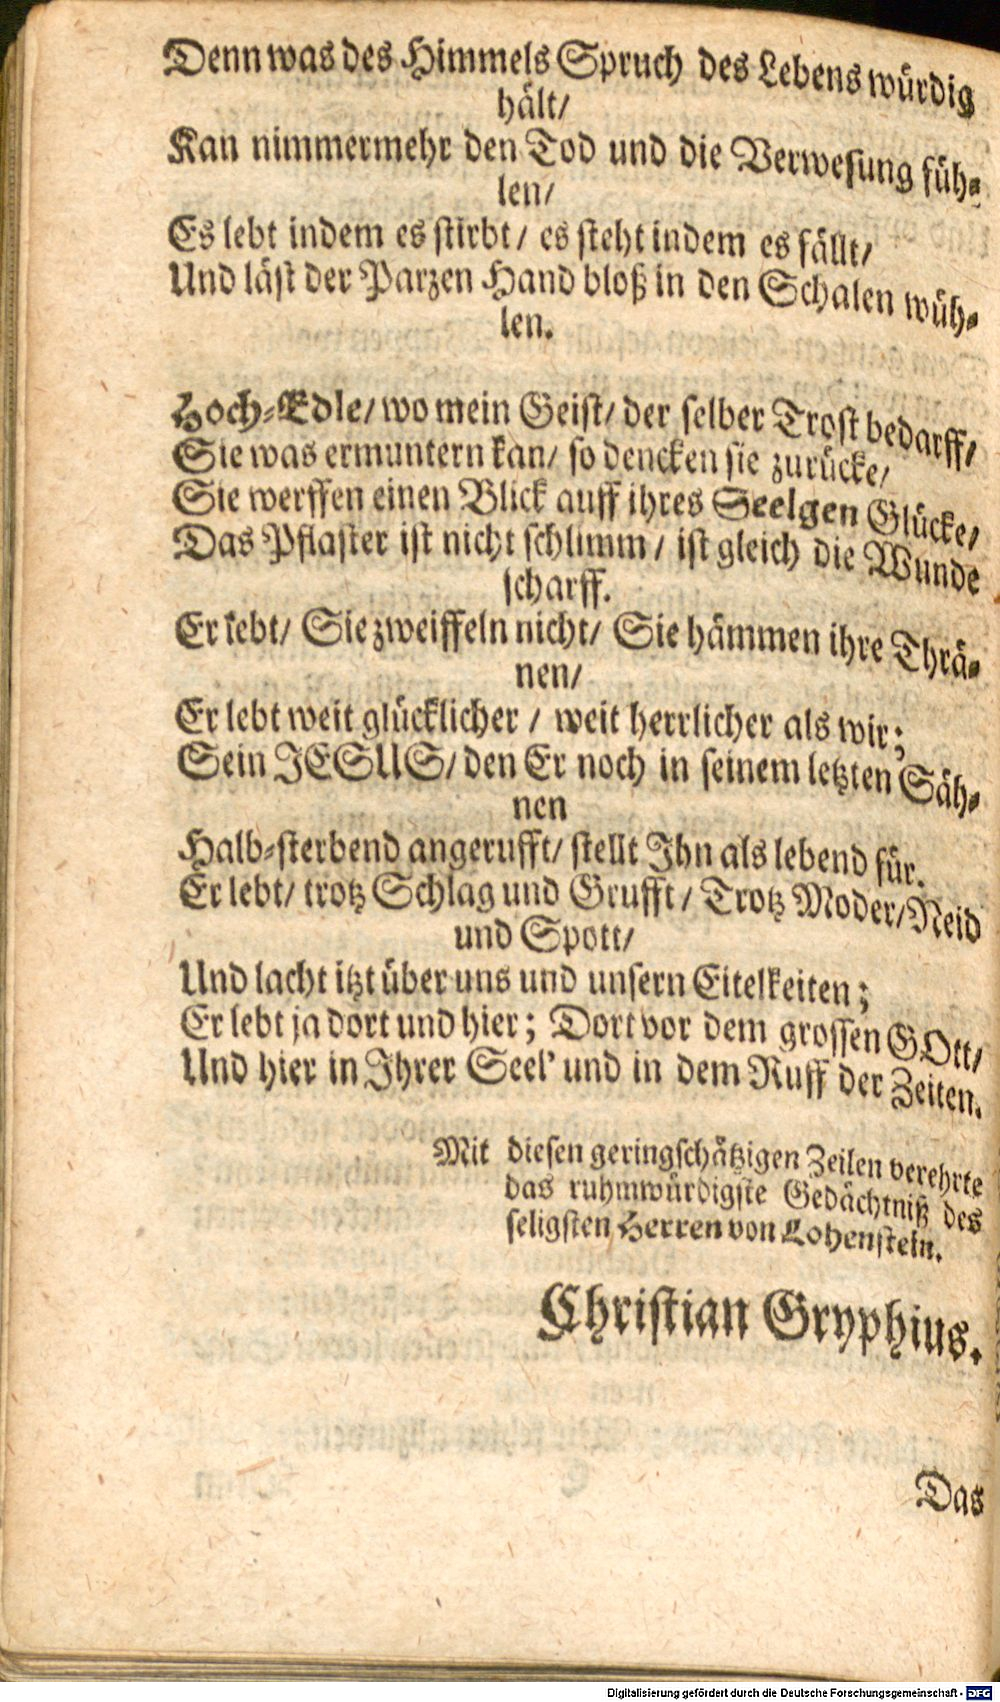 Denn was des Himmels Spruch des Lebens würdig
hält/
Kan nimmermehr den Tod und die Verwesung füh-
len/
Es lebt indem es stirbt/ es steht indem es fällt/
Und läst der Parzen Hand bloß in den Schalen wüh-
len.
Hoch-Edle/ wo mein Geist/ der selber Trost bedarff/
Sie was ermuntern kan/ so dencken sie zurücke/
Sie werffen einen Blick auff ihres Seelgen Glücke/
Das Pflaster ist nicht schlimm/ ist gleich die Wunde
scharff.
Er lebt/ Sie zweiffeln nicht/ Sie hämmen ihre Thrä-
nen/
Er lebt weit glücklicher / weit herrlicher als wir;
Sein JESUS/ den Er noch in seinem letzten Säh-
nen
Halb-sterbend angerufft/ stellt Ihn als lebend für.
Er lebt/ trotz Schlag und Grufft/ Trotz Moder/ Neid
und Spott/
Und lacht itzt über uns und unsern Eitelkeiten;
Er lebt ja dort und hier; Dort vor dem grossen GOtt/
Und hier in Ihrer Seel' und in dem Ruff der Zeiten.
Mit diesen geringschätzigen Zeilen verehrte
das ruhmwürdigste Gedächtniß des
seligsten Herren von Lohenstein.
Christian Gryphius.
Das
Digitalisierung gefördert durch die Deutsche Forschungsgemeinschaft - DFG